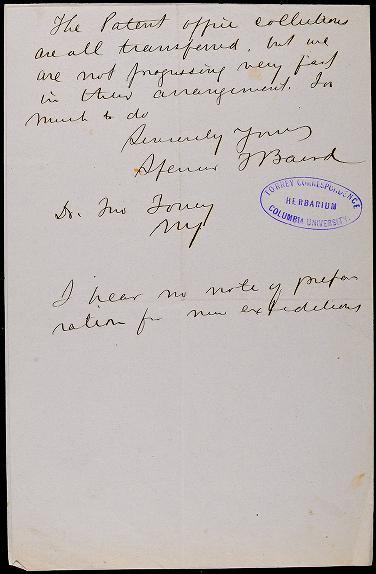 The Patent office collections
are all transferred, but we
are not progressing very fast
in their arrangement. So
much to do
Sincerely Yours
Spencer F Baird
Dr. Jno Torrey
NY
TORREY CORRESPONDENCE
HERBARIUM
COLUMBIA UNIVERSITY.
I hear no note of prepa
ration for new expeditions